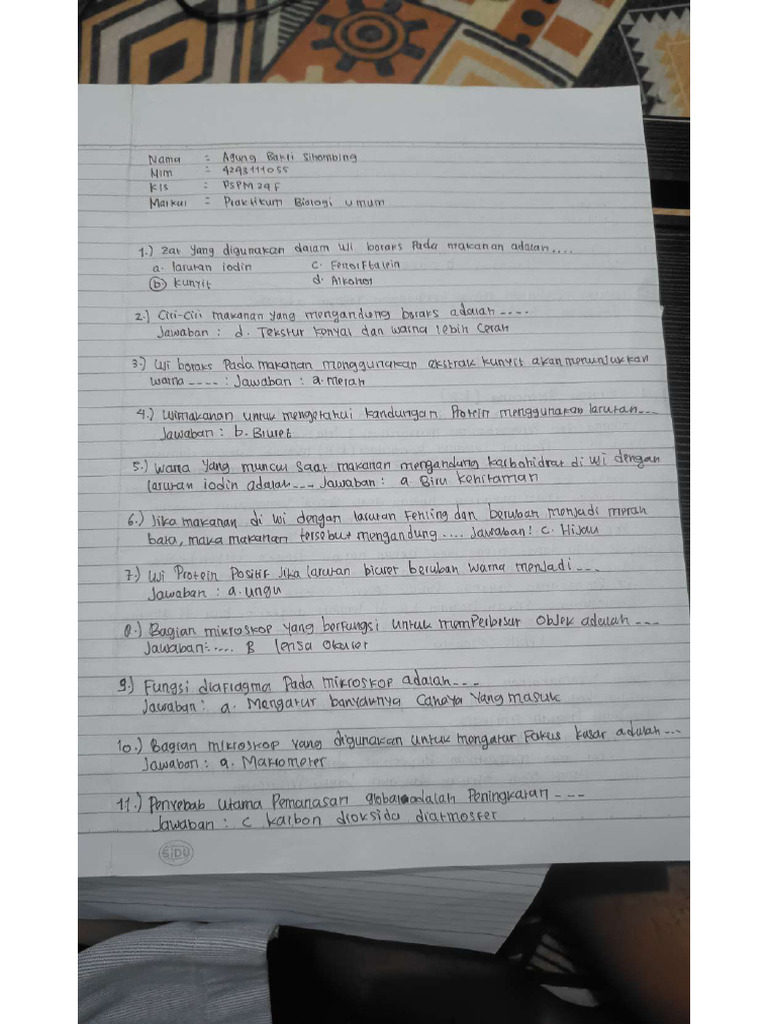 Nama : Agung Bakti Sihombing
Nim : 4243111055
Kls : PSPM 24 F
Matkul : Praktikum Biologi umum
1.) Zat yang digunakan dalam uji boraks Pada makanan adalah....
a. larutan iodin c. Fenolftalein
b. kunyit d. Alkohol
2.) Ciri-ciri makanan yang mengandung boraks adalah ----
Jawaban : d. Tekstur kenyal dan warna lebih cerah
3.) Uji boraks Pada makanan menggunakan ekstrak kunyit akan menunjukkan
warna ---- : Jawaban : a. merah
4.) Uji makanan untuk mengetahui kandungan Protein menggunakan larutan---
Jawaban : b. Biuret
5.) Warna yang muncul saat makanan mengandung karbohidrat di uji dengan
larutan iodin adalah --- Jawaban : a Biru kehitaman
6.) Jika makanan di uji dengan larutan Fehling dan berubah menjadi merah
bata, maka makanan tersebut mengandung .... Jawaban : c. Hijau
7.) Uji Protein Positif Jika larutan biuret berubah warna menjadi ---
Jawaban : a. ungu
8.) Bagian mikroskop yang berfungsi untuk memperbesar objek adalah ---
Jawaban :.... B lensa Okuler
9.) Fungsi diafragma Pada mikroskop adalah ---
Jawaban : a. Mengatur banyaknya Cahaya Yang masuk
10.) Bagian mikroskop yang digunakan untuk mengatur Fokus kasar adalah ---
Jawaban : a. Makrometer
11.) Penyebab Utama Pemanasan global adalah Peningkatan ---
Jawaban : c karbon dioksida diatmosfer
SIDU